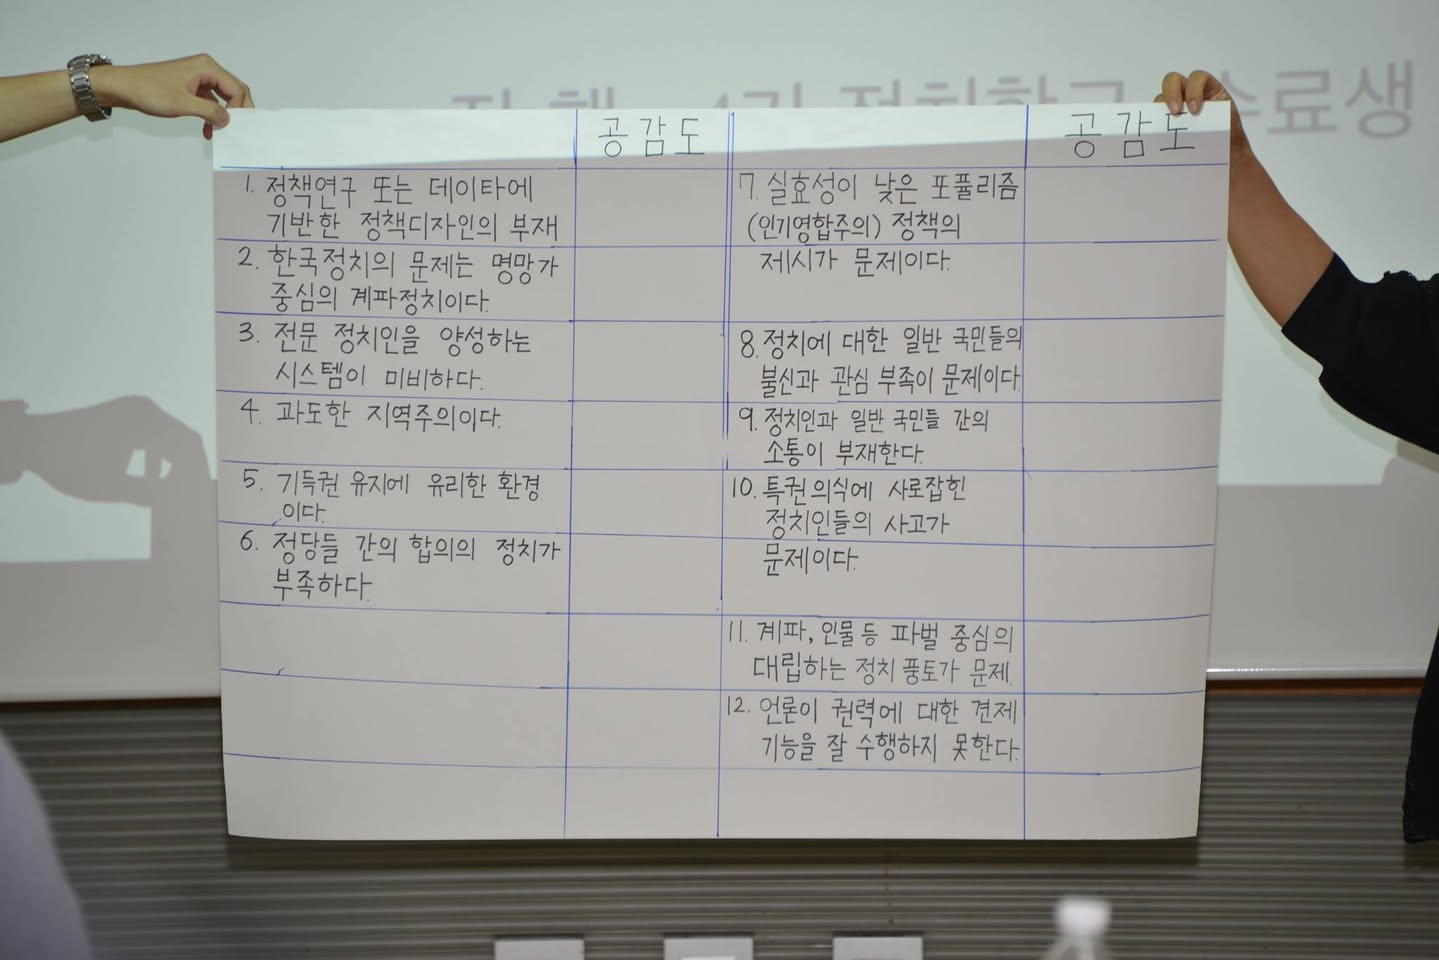 4기 정치학교 수료생
공감도
공감도
1. 정책연구 또는 데이타에
기반한 정책디자인의 부재
2. 한국정치의 문제는 명망가
중심의 계파정치이다.
3. 전문 정치인을 양성하는
시스템이 미비하다.
4. 과도한 지역주의이다.
5. 기득권 유지에 유리한 환경
이다.
6. 정당들 간의 합의의 정치가
부족하다.
7. 실효성이 낮은 포퓰리즘
(인기영합주의) 정책의
제시가 문제이다.
8. 정치에 대한 일반 국민들의
불신과 관심 부족이 문제이다.
9. 정치인과 일반 국민들 간의
소통이 부재한다.
10. 특권의식에 사로잡힌
정치인들의 사고가
문제이다.
11. 계파, 인물 등 파벌 중심의
대립하는 정치 풍토가 문제.
12. 언론이 권력에 대한 견제
기능을 잘 수행하지 못한다.